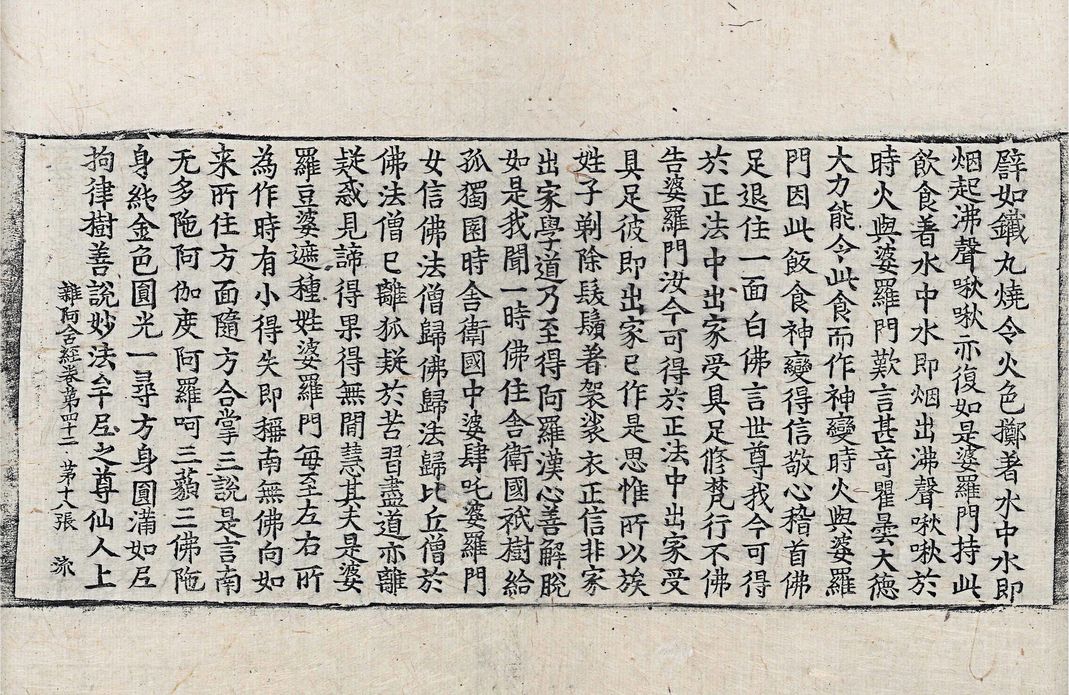 譬如鐵丸燒令火色擲著水中水即
烟起沸聲啾啾亦復如是婆羅門持此
飲食著水中水即烟出沸聲啾啾於
時火與婆羅門歎言甚奇瞿曇大德
大力能令此食而作神變時火與婆羅
門因此飯食神變得信敬心稽首佛
足退住一面白佛言世尊我今可得
於正法中出家受具足修梵行不佛
告婆羅門汝今可得於正法中出家受
具足彼即出家已作是思惟所以族
姓子剃除鬚髮著袈裟衣正信非家
出家學道乃至得阿羅漢心善解脫
如是我聞一時佛住舍衛國祇樹給
孤獨園時舍衛國中婆肆吒婆羅門
女信佛法僧歸佛歸法歸比丘僧於
佛法僧已離狐疑於苦習盡道亦離
疑惑見諦得果得無間慧其夫是婆
羅豆婆遮種姓婆羅門每至左右所
為作時有小得失即稱南無佛向如
来所住方面隨方合掌三說是言南
无多陁阿伽度阿羅呵三藐三佛陁
身純金色圓光一尋方身圓滿如尼
拘律樹善說妙法牟尼之尊仙人上
雜阿含經卷第四十二 第十八張 流